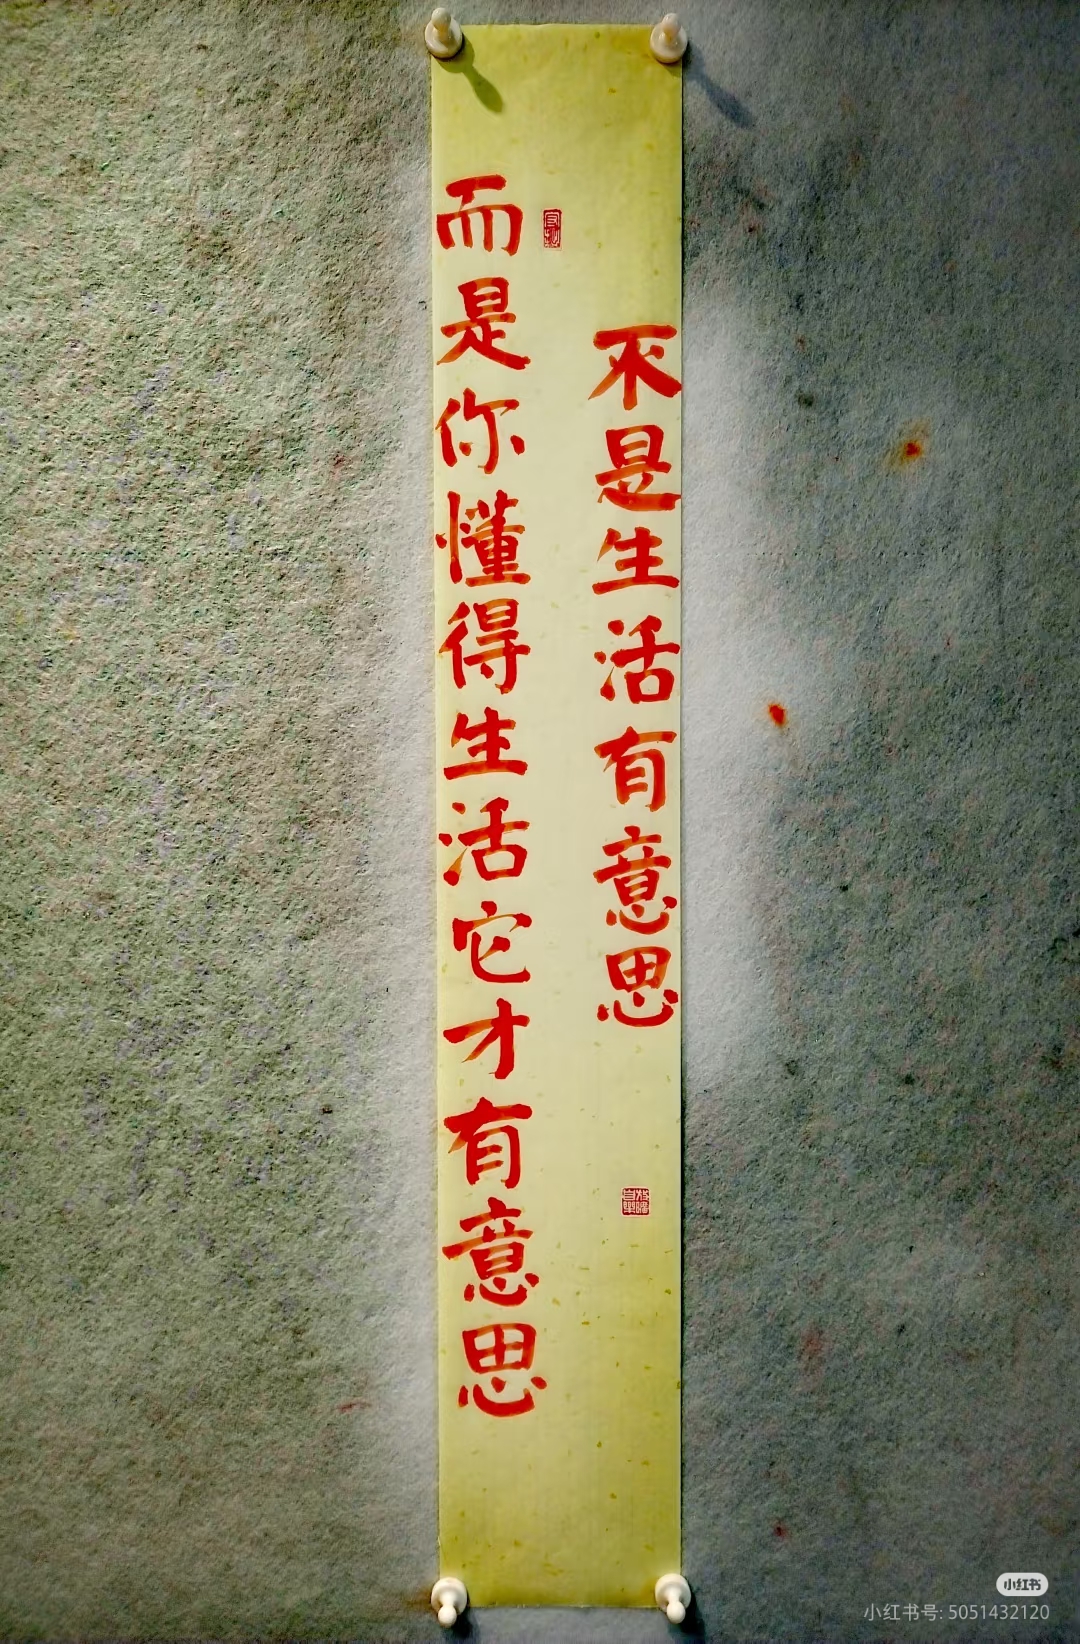 不是生活有意思
而是你懂得生活它才有意思
小红书
小红书号: 5051432120